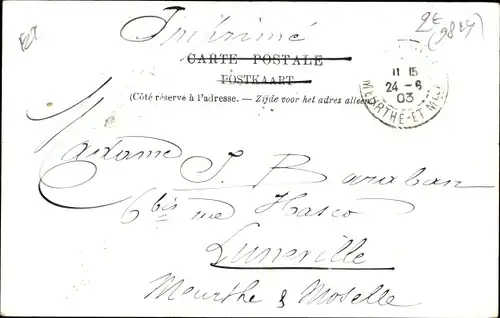 Imprimé
2€
(9824)
CARTE POSTALE
POSTKAART
(Côté réservé à l'adresse. — Zijde voor het adres alleen.)
11 15
24 - 6
03
MEURTHE-ET-M
Madame J. Baraban
6 bis rue Hasco
Luneville
Meurthe & Moselle